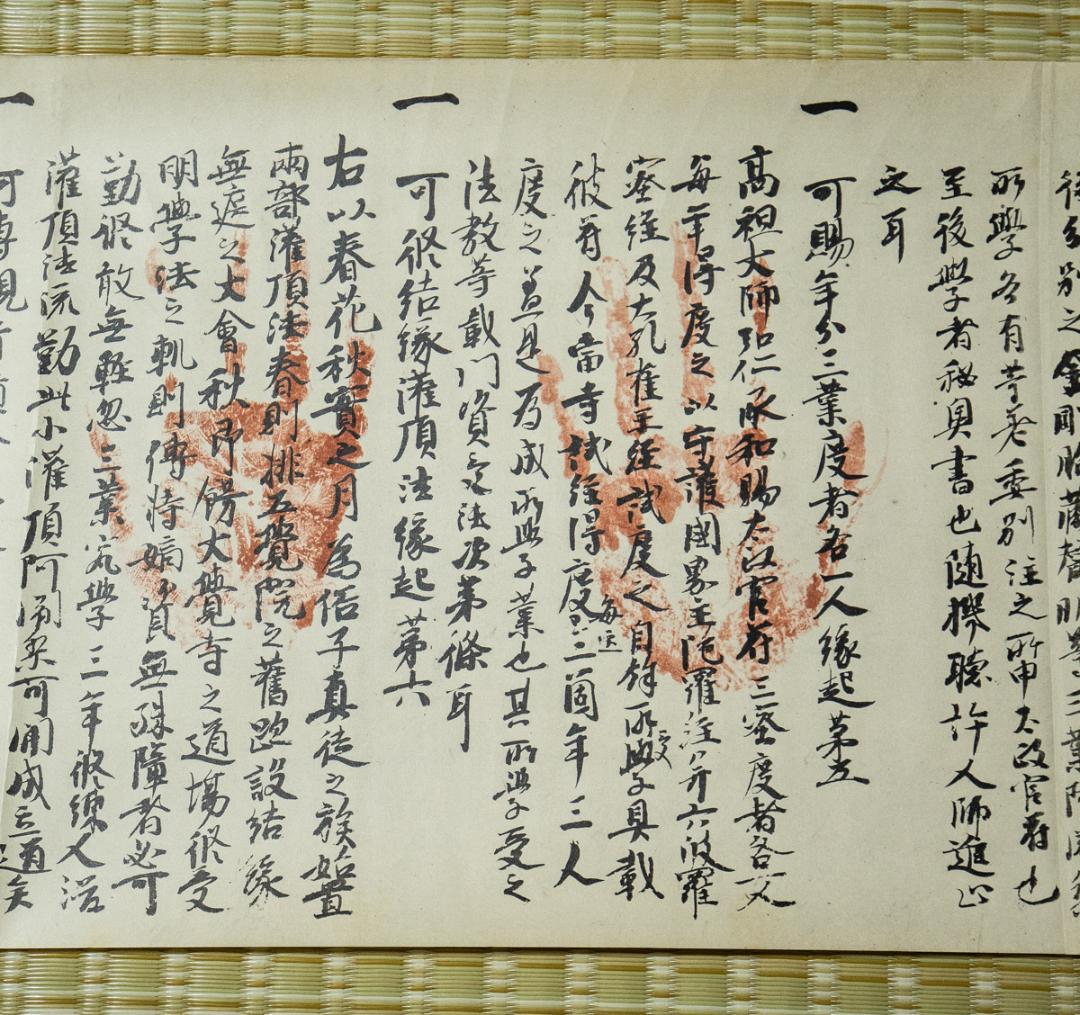 所學各有苦老委別注之所申太政官符也
至後學者秘奧書也隨機聽許人師進止
之耳
一
可賜年分三業度者各一人緣起第五
高祖大師弘仁承和賜太政官符三密度者各一人
每年得度之以守護國界主陀羅注并六波羅
密經及大孔雀王經試度之自餘所學子具載
彼符今當寺試經得度每年三箇年三人
度之並是為成所學子業也其所學子受之
法教等載門資之法次第條耳
一
可修結緣灌頂法緣起第六
右以春花秋實之月為佰子真徒之族始置
兩部灌頂法春則排五覺院之舊跡設結緣
無遮之大會秋即餝大覺寺之道場修受
明學法之軌則傳持嫡資無殊障者必可
勤修敢無輕忽三業究學三年修練人浴
灌頂法流勤此小灌頂阿闍梨可用成立道矣
一